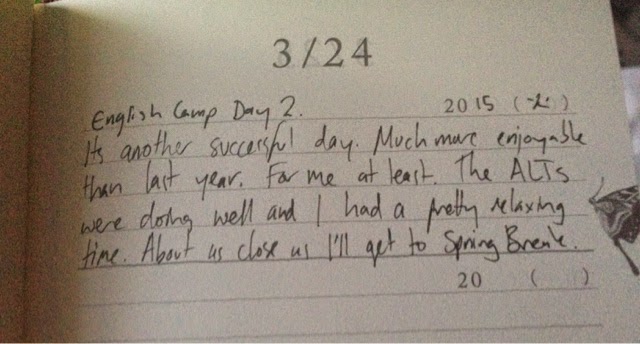 3/24
English Camp Day 2. 2015 (火)
Its another successful day. Much more enjoyable
than last year. For me at least. The ALTs
were doing well and I had a pretty relaxing
time. About as close as I'll get to Spring Break.
20 ( )